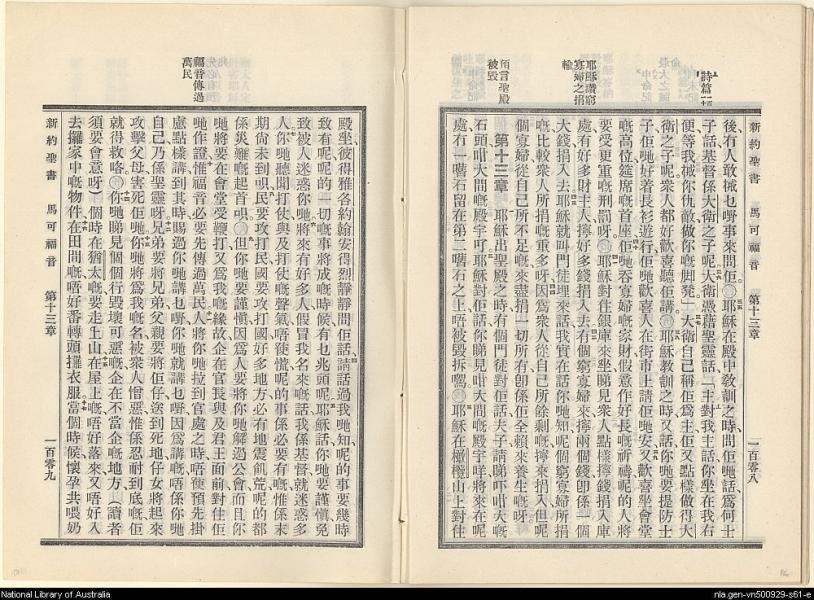 新約聖書 馬可福音 第十三章 一百零八
後有人敢𢬿乜嘢事來問佢○耶穌在殿中敎訓之時問佢哋話爲何士
子話基督係大衛之子呢大衛憑藉聖靈話「主對我主話你坐在我右
便等我𢬿你仇敵做你嘅脚凳」大衛自己稱佢爲主佢又點樣做得大
衛之子呢衆人都好歡喜聽佢講○耶穌敎訓之時又話你哋要提防士
子佢哋好着長衫遊行佢哋歡喜人在街市上請佢哋安又歡喜坐會堂
嘅高位筵席嘅首座佢哋吞寡婦嘅家財假意作好長嘅祈禱呢的人將
要受更重嘅刑罰呀○耶穌對住銀庫來坐睇見衆人點樣擰錢捐入庫
處有好多財主人擰好多錢捐入去有個窮寡婦來擰兩個錢卽係一個
大錢捐入去耶穌就叫門徒埋來話我實在話你哋知呢個窮寡婦所捐
嘅比較衆人所捐嘅重多呀因爲衆人從自己所餘剩嘅擰來捐入但呢
個寡婦從自己所不足嘅來盡捐一切所有卽係佢全賴來養生嘅呀
第十三章 耶穌出聖殿之時有個門徒對佢話夫子請睇吓咁大嘅
石頭咁大間嘅殿宇呵耶穌對佢話你睇見咁大間嘅殿宇咩將來在呢
處冇一嚿石留在第二嚿石之上唔被毀拆嘅○耶穌在橄欖山上對住
詩篇一百一十
耶穌讚窮
寡婦之捐
輸
預言聖殿
被毀
殿坐彼得雅各約翰安得烈靜靜問佢話請話過我哋知呢的事要幾時
致有呢呢的一切嘅事將成嘅時候有乜兆頭呢耶穌話你哋要謹愼免
致被人迷惑你哋將來有好多人假冒我名來嘅話我係基督就迷惑多
人你哋聽聞打仗與及打仗嘅聲氣唔使慌呢的事係必要有嘅惟係末
期尙未到唄民要攻打民國要攻打國好多地方必有地震飢荒呢的都
係災難嘅起首唄○但你哋要謹愼因爲人要將你哋解過公會而且你
哋將要在會堂受鞭打又爲我嘅緣故企在官長與及君王面前對住佢
哋作證惟福音必要先傳過萬民人將你哋拉到官處之時唔使預先掛
慮點樣講到其時賜過你哋講乜嘢你哋就講乜嘢因爲講嘅唔係你哋
自己乃係聖靈呀兄弟要將兄弟父親要將佢仔送到死地仔女將起來
攻擊父母害死佢哋你哋將爲我嘅名被衆人憎惡惟係忍耐到底嘅佢
就得救咯○你哋睇見個個行毀壞可惡嘅企在不當企嘅地方（讀者
須要會意呀）個時在猶太嘅要走上山在屋上嘅唔好落來又唔好入
去攞家中嘅物件在田間嘅唔好番轉頭攞衣服當個時候懷孕共喂奶
新約聖書 馬可福音 第十三章 一百零九
福音傳過
萬民
National Library of Australia
nla.gen-vn500929-s61-e